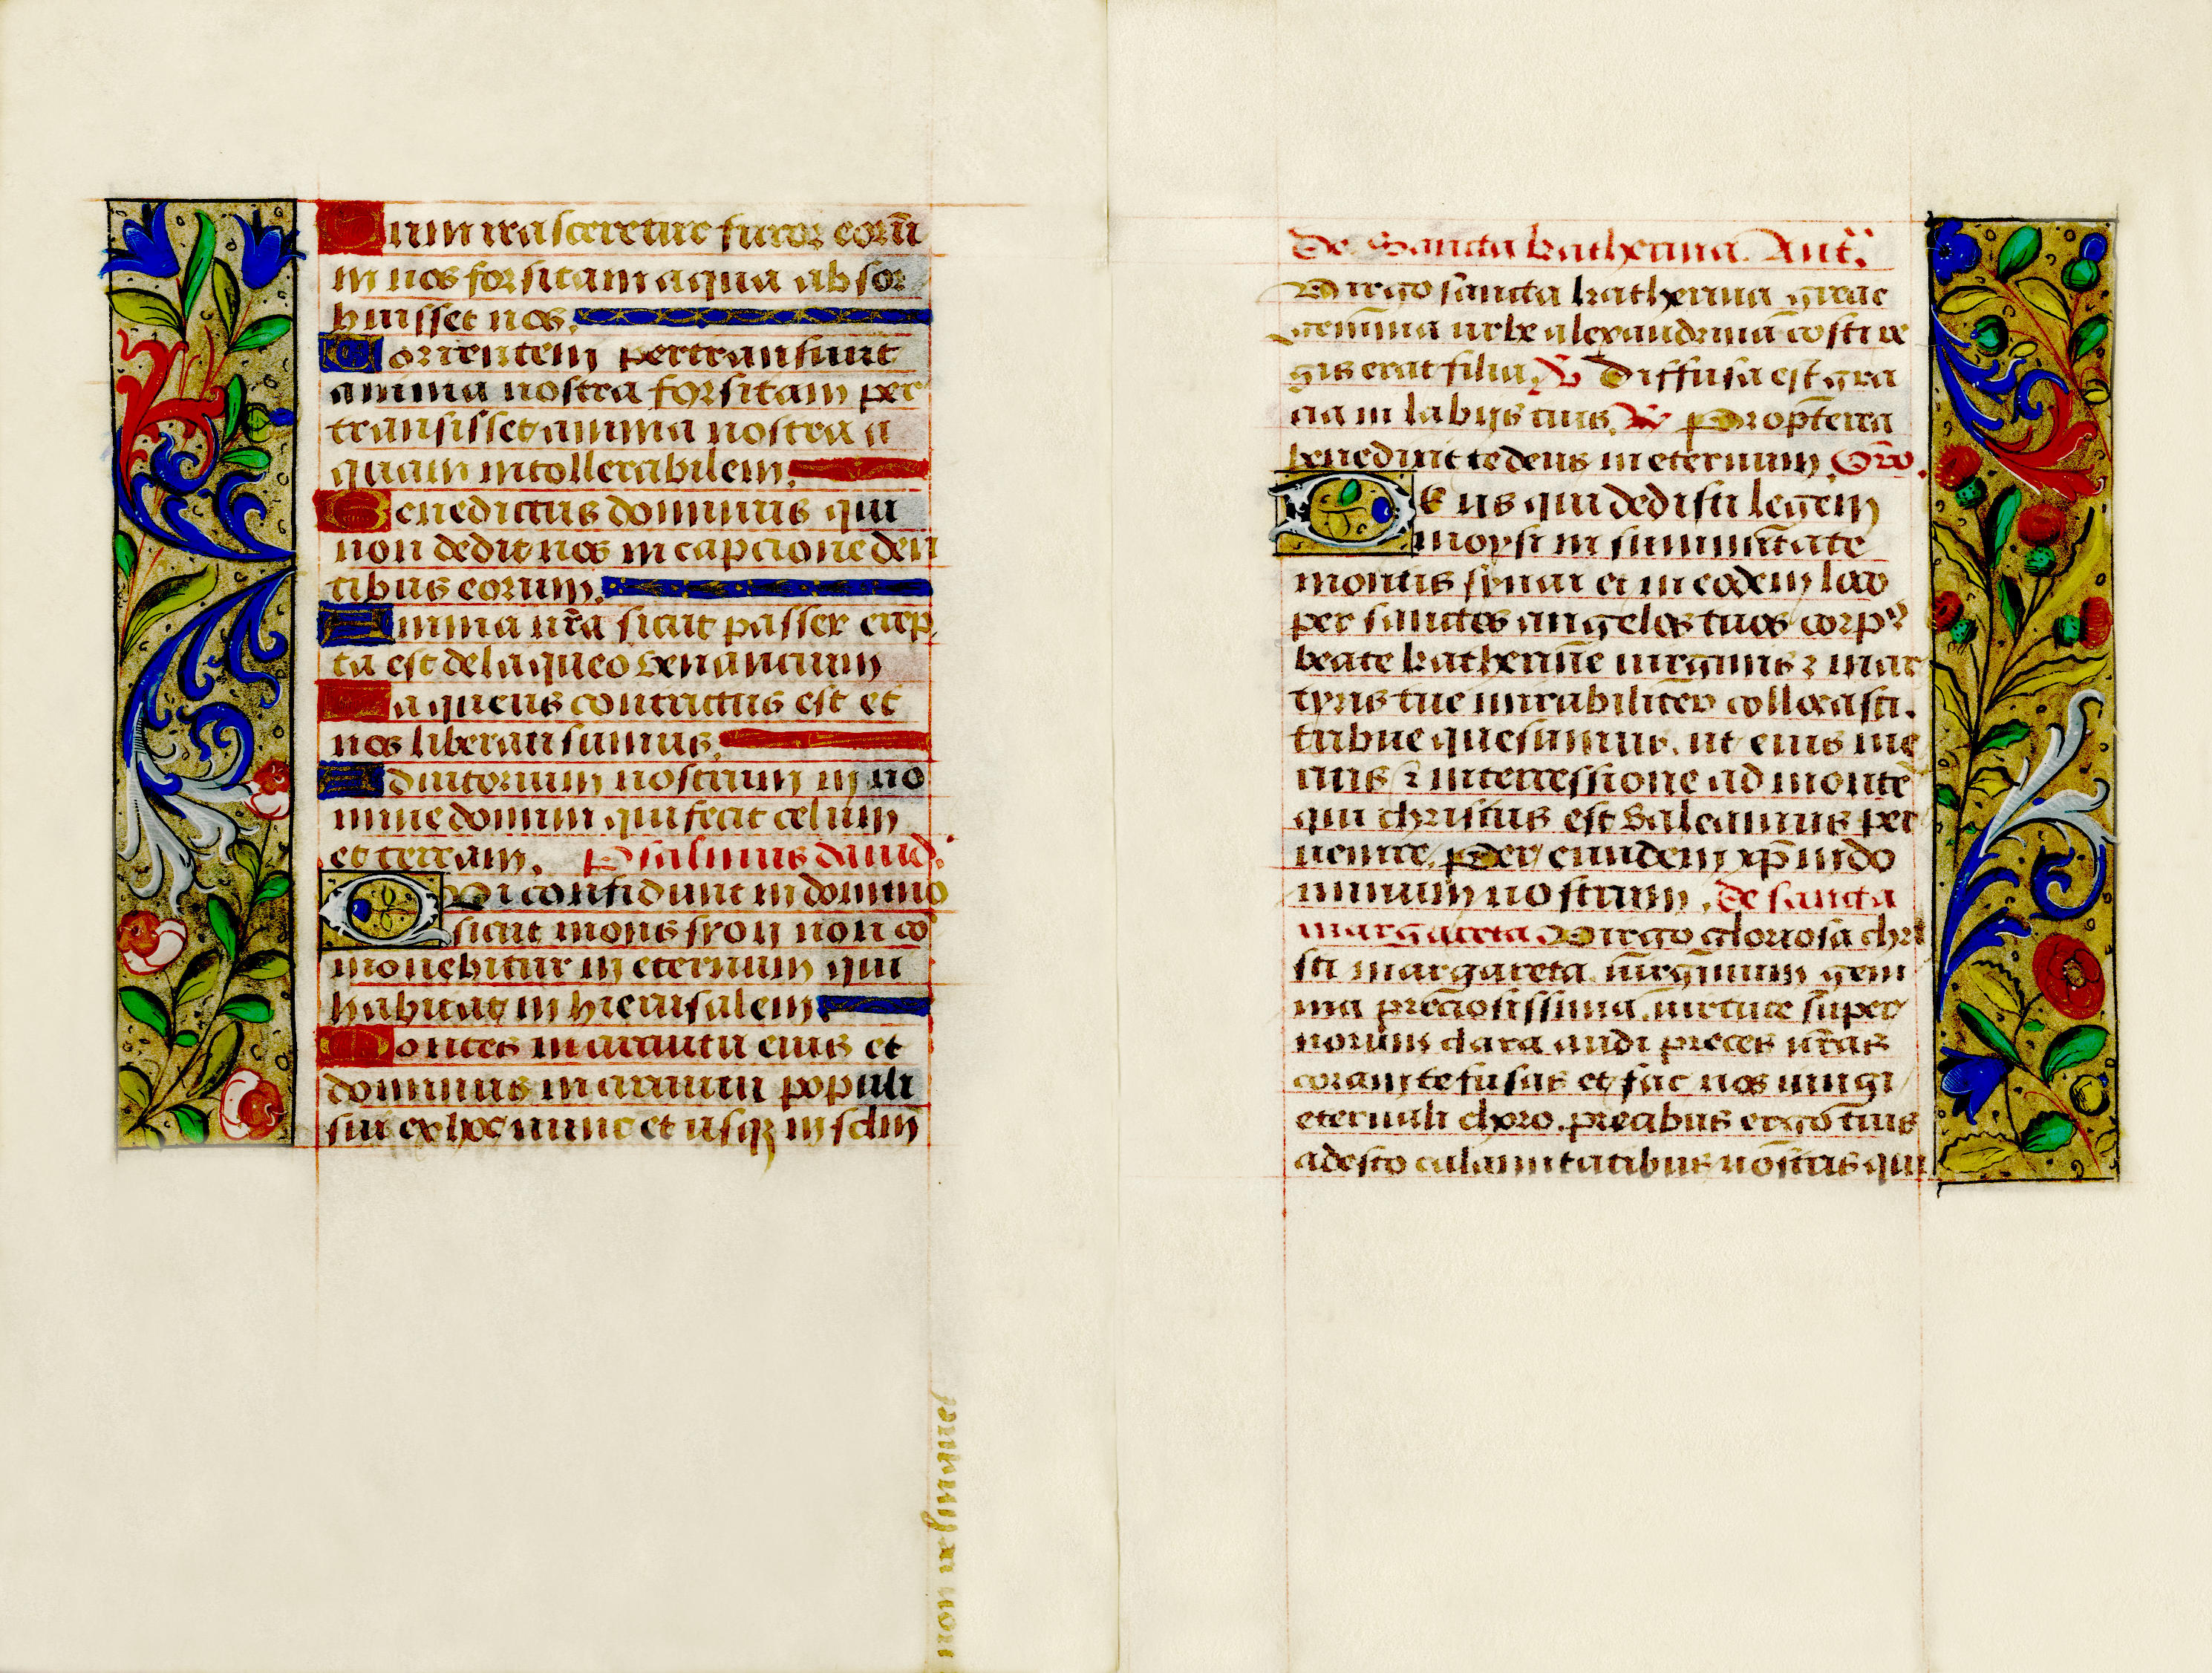 Cum irasceretur furor eorū
in nos forsitam aqua absor
buisset nos.
Torrentem pertransiuit
anima nostra forsitam per
transisset anima nostra a
quam intollerabilem.
Benedictus dominus qui
non dedit nos in capcione den
tibus eorum.
Anima nr̄a sicut passer erep
ta est de laqueo venancium
Laqueus contritus est et
nos liberati sumus.
Adiutorium nostrum in no
mine domini qui fecit celum
et terram. Psalmus dauid.
Qui confidunt in domino
sicut mons syon non cō
mouebitur in eternum qui
habitat in hierusalem.
Montes in circuitu eius et
dominus in circuitu populi
sui ex hoc nunc et usqꝫ in sclm̄
non relinquet
De Sancta katherina. Ant̄.
Virgo sancta katherina grec
gemma urbe alexandrina costi re
gis erat filia. ℣ Diffusa est gra
cia in labijs tuis. ℟ Propterea
benedixit te deus in eternum Oro.
Deus qui dedisti legem
moysi in summitate
montis synai et in eodem loco
per sanctos angelos tuos corpꝰ
beate katherine uirginis ⁊ mar
tyris tue mirabiliter collocasti.
tribue quesumus. ut eius me
ritis ⁊ intercessione ad montē
qui christus est valeamus per
uenire. Per eundem xp̄m do
minum nostrum. de sancta
margareta Virgo gloriosa chri
sti margareta. uirginum gem
ma preciosissima. uirtute super
norum clara audi preces nr̄as
coram te fusas et fac nos iungi
eternali choro. precibus ergo tuis
adesto calamitatibus nostris qui